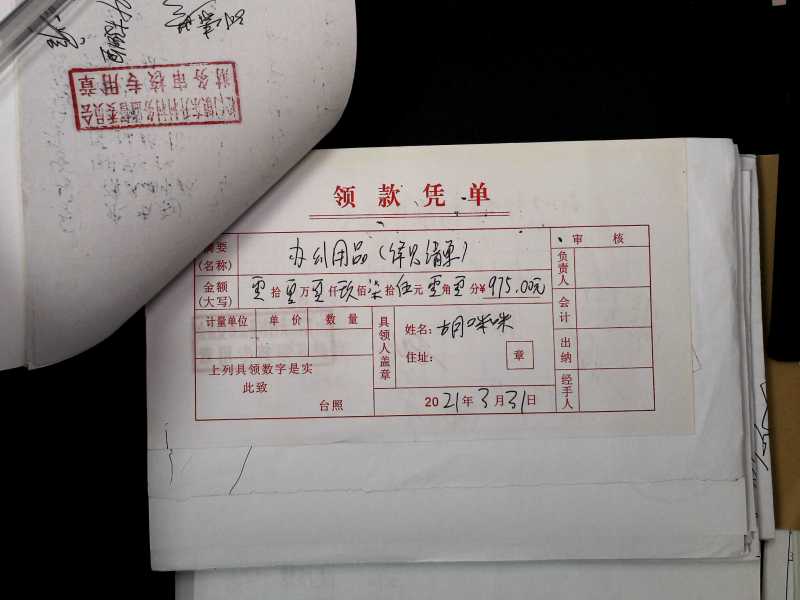 领款凭单
摘要(名称) 办公用品(详见清单) 审核
金额(大写) 零拾零万零仟玖佰柒拾伍元零角零分¥975.00元 负责人
计量单位 单价 数量 具领人盖章 姓名: 胡咪咪 会计
住址: 章 出纳
上列具领数字是实
此致
台照 2021年3月31日 经手人
财务审核专用章